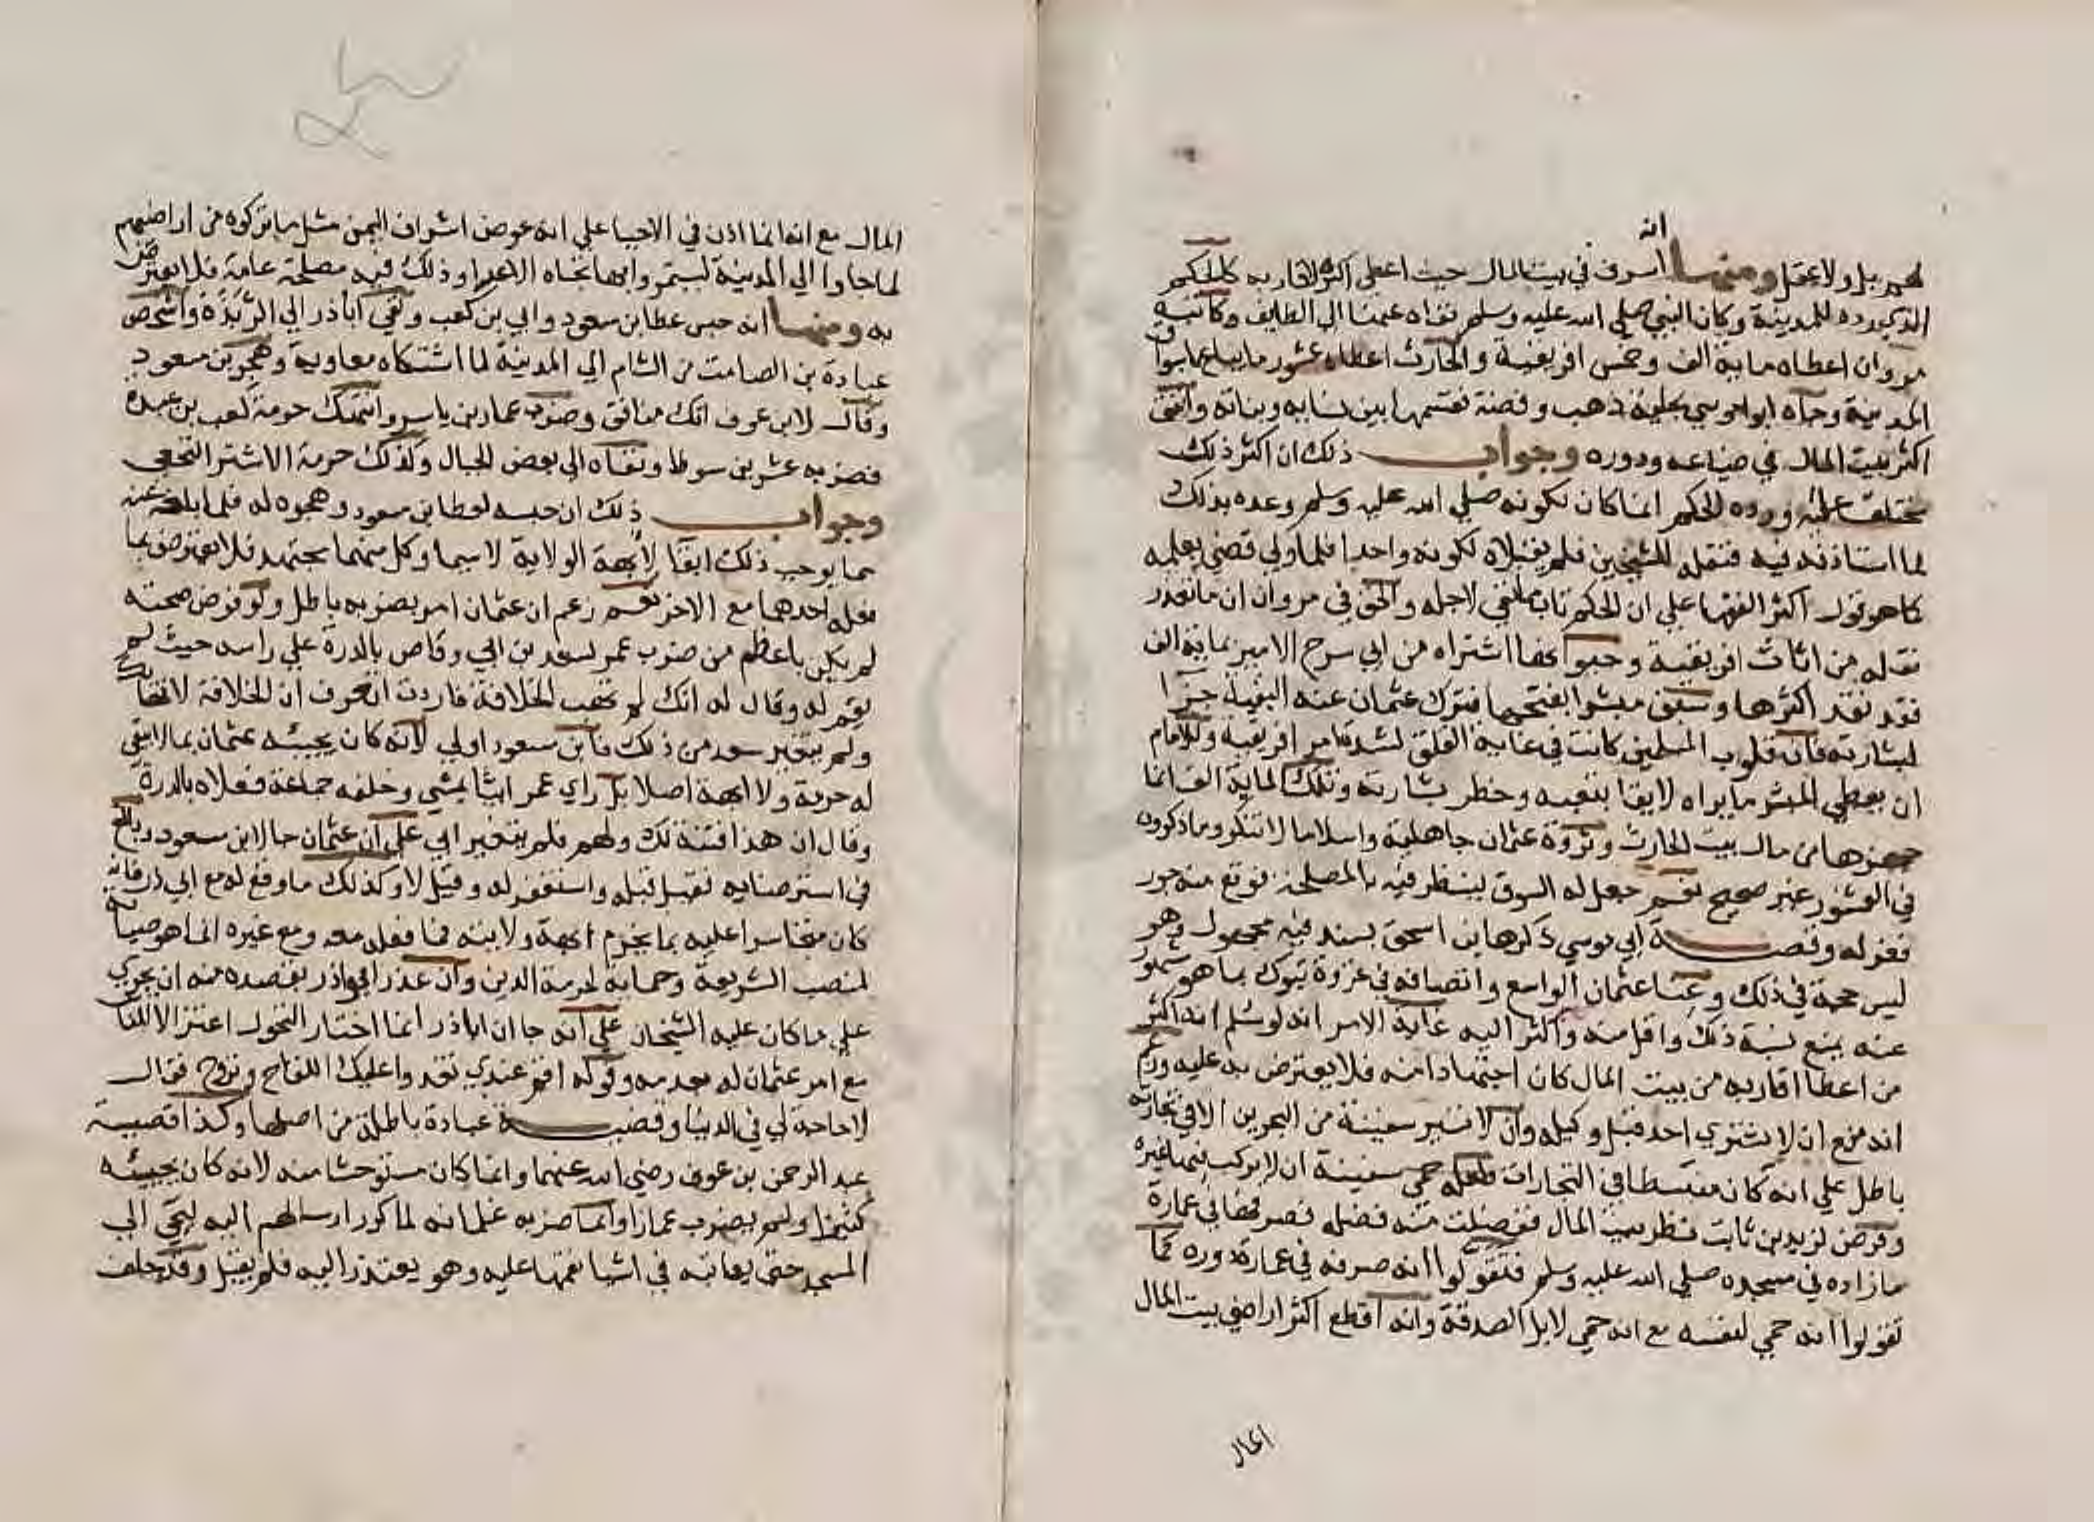 انه
لهم بل ولا عقل ومنها اسرف في بيت المال حيث اعطى اكثره لاقاربه كالحكم
الذي رده للمدينة وكان النبي صلي الله عليه وسلم نفاه عنها الي الطايف وكاتبه
مروان اعطاه ماية الف وخمس افريقية والحارث اعطاه عشور ما يباع باسواق
المدينة وجاه ابو موسي بحلية ذهب وفضة فقسمها بين نسايه وبناته وانفق
اكثر بيت المال في ضياعه ودوره وجواب ذلك ان اكثر ذلك
مختلق عليه ورده الحكم انما كان لكونه صلي الله عليه وسلم وعده بذلك
لما استاذنه فيه فنقله للشيخين فلم يقبلاه لكونه واحدا فلما ولي قضي بعلمه
كما هو قول اكثر الفقها علي ان الحكم تاب مما نفي لاجله والحق في مروان ان ما تعذر
نقله من اثاث افريقية وحيوانها اشتراه من ابي سرح الامير بماية الف
فقد نقد اكثرها وسبق مبشرا بفتحها فترك عثمان عنه البقية جزا
لبشارته فان قلوب المسلمين كانت في غاية القلق لشدة امر افريقية وللامام
ان يعطي المبشر ما يراه لايقا بتعبه وخطر بشارته وتلك الماية الف انما
جهزها من مال بيت الحارث وثروة عثمان جاهلية واسلاما لا تنكر وما ذكروه
في العشور غير صحيح نعم جعل له السوق لينظر فيه بالمصلحة فوقع منه جور
فعزله وقصة ابي موسي ذكرها ابن اسحق بسند فيه مجهول وهو
ليس حجة في ذلك وغنا عثمان الواسع وانفاقه في غزوة تبوك بما هو مشهور
عنه يمنع نسبة ذلك واقل منه واكثر اليه غاية الامر انه لو سلم انه اكثر
من اعطا اقاربه من بيت المال كان اجتهادا منه فلا يعترض به عليه وزعم
انه منع ان لا يشتري احد قبل وكيله وان لا تسير سفينة من البحرين الا في تجارته
باطل علي انه كان منبسطا في التجارات فلعله حمي سفينة ان لا يركب فيها غيره
وفوض لزيد بن ثابت نظر بيت المال ففضلت منه فضلة فصرفها في عمارة
ما زاده في مسجده صلي الله عليه وسلم فتقولوا انه صرفه في عمارة دوره كما
تقولوا انه حمي لنفسه مع انه حمي لابل الصدقة وانه اقطع اكثر اراضي بيت المال
المال مع انه انما اذن في الاحيا علي انه عوض اشراف اليمن مثل ما تركوه من اراضيهم
لما جاوا الي المدينة ليستمروا بها تجاه الاعدا وذلك فيه مصلحة عامة فلا يعترض
به ومنها انه حبس عطا بن مسعود وابي بن كعب ونفي اباذر الي الربذة واشخص
عبادة بن الصامت من الشام الي المدينة لما اشتكاه معاوية وهجر بن مسعود
وقال لابن عوف انك منافق وضرب عمار بن ياسر وانتهك حرمة كعب بن عبدة
فضربه عشرين سوطا ونفاه الي بعض الجبال وكذلك حرمة الاشتر النخعي
وجواب ذلك ان حبسه لعطا بن مسعود وهجره له فلما ابلغه عنه
مما يوجب ذلك ابقا لابهة الولاية لا سيما وكل منهما مجتهد فلا يعترض بما
فعله احدهما مع الاخر نعم زعم ان عثمان امر بضربه باطل ولو فرض صحته
لم يكن باعظم من ضرب عمر لسعد بن ابي وقاص بالدرة علي راسه حيث لم
يقم له وقال له انك لم تهب الخلافة فاردت ان تعرف ان الخلافة لا تهابك
ولم يتغير سعد من ذلك فابن مسعود اولي لانه كان يجيبه عثمان بما لا يبقي
له حرمة ولا ابهة اصلا بل راي عمر ابيا يمشي وخلفه جماعة فعلاه بالدرة
وقال ان هذا فتنة لك ولهم فلم يتغير ابي علي ان عثمان جا لابن مسعود وبالغ
في استرضايه فقيل قبله واستغفر له وقيل لا وكذلك ما وقع له مع ابي ذر فانه
كان متجاسرا عليه بما يخرم ابهة ولايته فما فعله معه ومع غيره انما هو صيانة
لمنصب الشريعة وحماية لحرمة الدين وان عذر ابو اذر بقصده منه ان يجري
علي ما كان عليه الشيخان علي انه جا ان اباذر انما اختار التحول اعتزالا للناس
مع امر عثمان له بعدمه وقوله اقم عندي تغدوا عليك اللقاح وتروح فقال
لا حاجة لي في الدنيا وقضية عبادة باطلة من اصلها وكذا قضية
عبد الرحمن بن عوف رضي الله عنهما وانما كان مستوحشا منه لانه كان يجيبه
كثيرا ولم يضرب عمارا وانما ضربه غلمانه لما كرر ارسالهم اليه ليجي الي
المسجد حتي يعاتبه في اشيا نقمها عليه وهو يعتذر اليه فلم يقبل وقد حلف